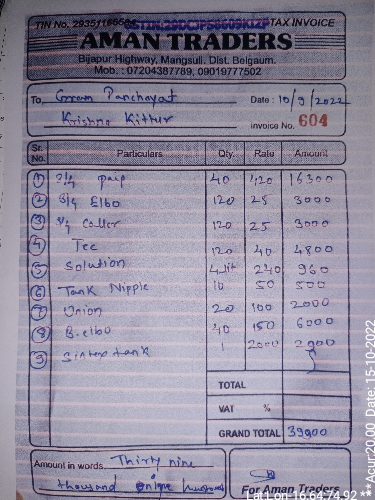 TIN No. 29351166564 TAX INVOICE
AMAN TRADERS
Bijapur Highway, Mangsuli. Dist. Belgaum.
Mob. : 07204387789, 09019777502
To, Gram Panchayat Date : 10/9/2022
Krishna Kittur Invoice No. 604
Sr. No. Particulars Qty. Rate Amount
1 3/4 paip 40 420 16300
2 3/4 Elbo 120 25 3000
3 3/4 Coller 120 25 3000
4 Tee 120 40 4800
5 Solution 4 lit 240 960
6 Tank Nipple 10 50 500
7 Union 20 100 2000
8 B.elbo 40 150 6000
9 Sintex tank 1 2000
TOTAL
VAT %
GRAND TOTAL 39900
Amount in words Thirty nine
thousand nine hundred
For Aman Traders
Lat/Lon-16.64,74.92**Acur:20.00 Date: 15-10-2022